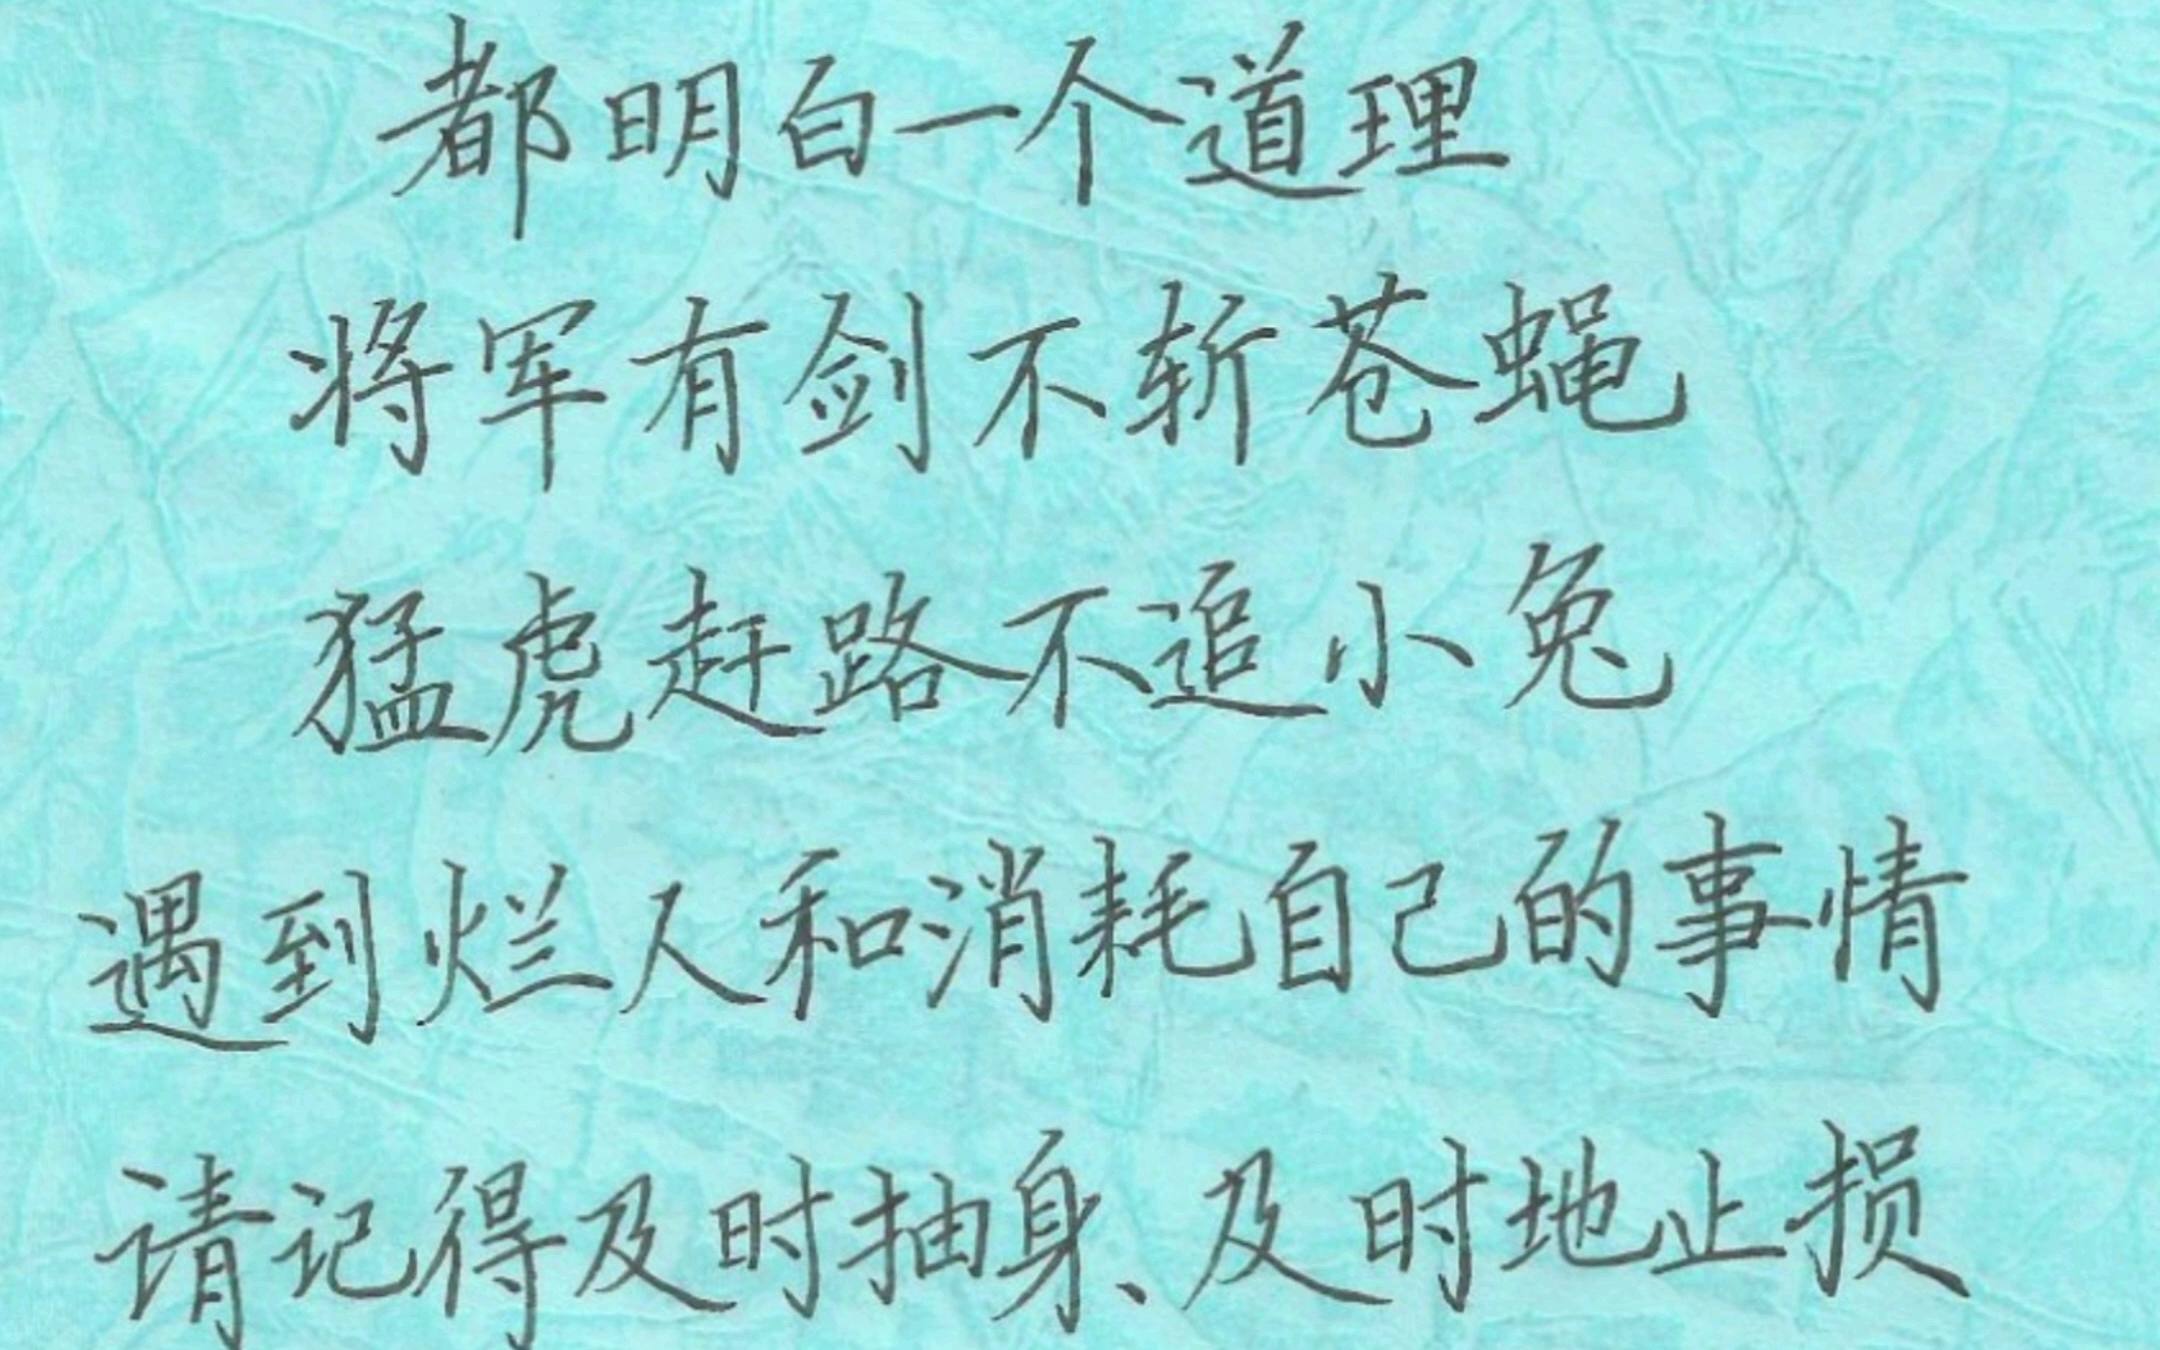 都明白一个道理
将军有剑不斩苍蝇
猛虎赶路不追小兔
遇到烂人和消耗自己的事情
请记得及时抽身、及时地止损